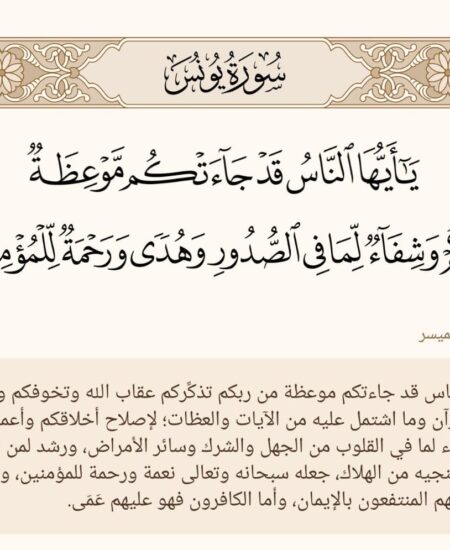 سُورَةُ يُونُسَ
يَٰٓأَيُّهَا ٱلنَّاسُ قَدۡ جَآءَتۡكُم مَّوۡعِظَةٞ
وَشِفَآءٞ لِّمَا فِي ٱلصُّدُورِ وَهُدٗى وَرَحۡمَةٞ
قد جاءتكم موعظة من ربكم تذكِّركم عقاب الله وتخوفكم
وما اشتمل عليه من الآيات والعظات؛ لإصلاح أخلاقكم
لما في القلوب من الجهل والشرك وسائر الأمراض، ورشد لمن
من الهلاك، جعله سبحانه وتعالى نعمة ورحمة للمؤمنين،
المنتفعون بالإيمان، وأما الكافرون فهو عليهم عَمَى.